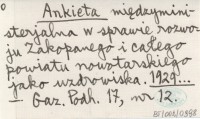 Ankieta międzymini-
sterjalna w sprawie rozwo-
ju Zakopanego i całego
powiatu nowotarskiego
jako uzdrowiska. 1929...
Gaz. Podh. 17, nr 12.